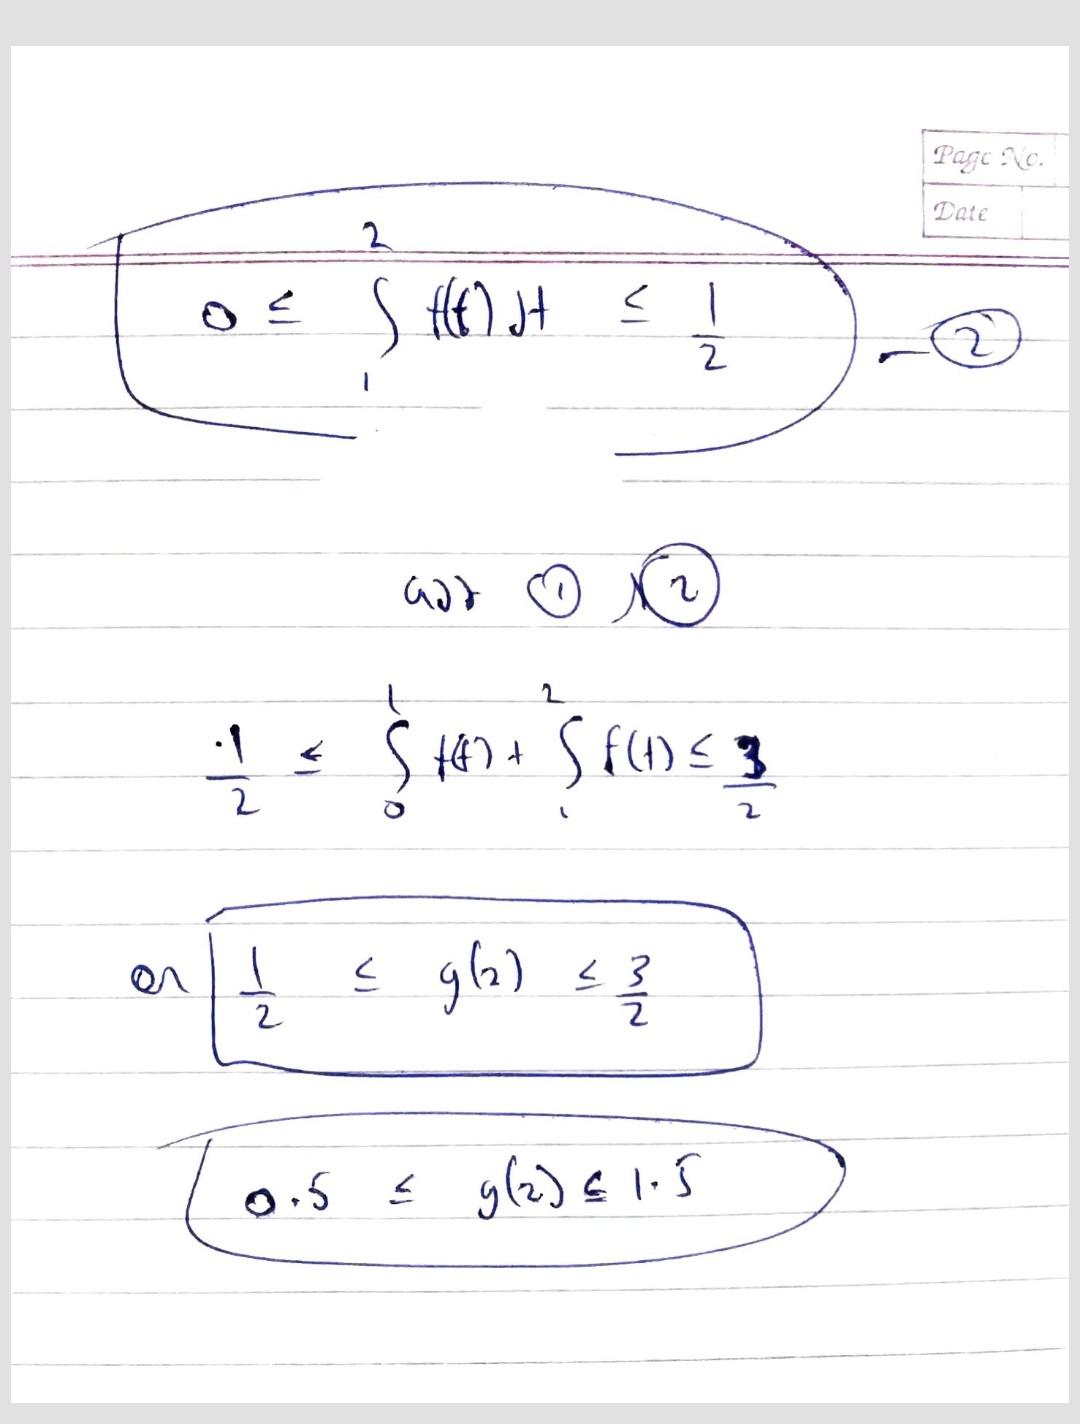 Page No.
Date
0 ≤ ∫₁² f(t) dt ≤ 1/2 - ②
add ① & ②
1/2 ≤ ∫₀¹ f(t) + ∫₁² f(t) ≤ 3/2
or 1/2 ≤ g(2) ≤ 3/2
0.5 ≤ g(2) ≤ 1.5